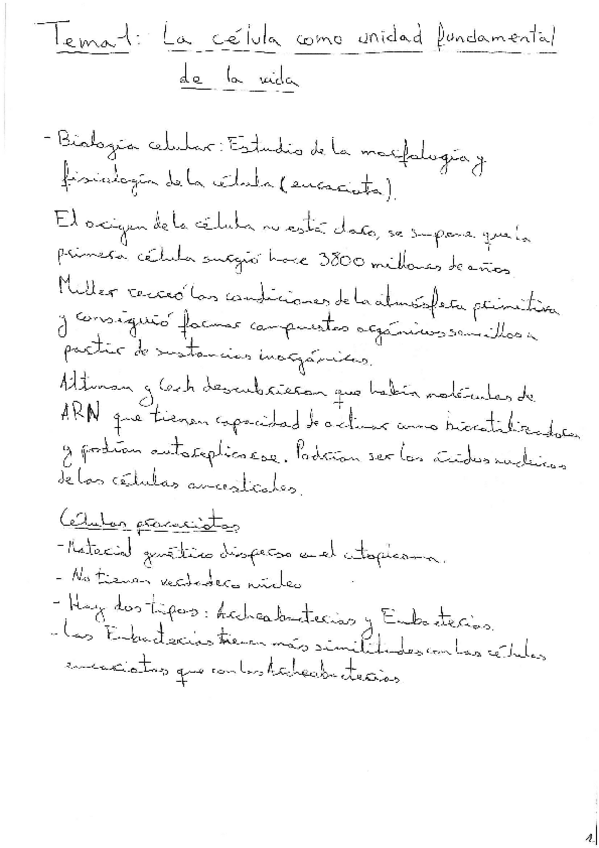 Tema 1: La célula como unidad fundamental
de la vida
- Biología celular: Estudio de la morfología y
fisiología de la célula (eucariota).
El origen de la célula no está claro, se supone que la
primera célula surgió hace 3800 millones de años.
Miller recreó las condiciones de la atmósfera primitiva
y consiguió formar compuestos orgánicos sencillos a
partir de sustancias inorgánicas.
Altman y Cech descubrieron que había moléculas de
ARN que tienen capacidad de actuar como
y podían autoreplicarse. Podrían ser los ácidos nucleicos
de las células ancestrales.
Células procariotas
- Material genético disperso en el citoplasma.
- No tienen verdadero núcleo
- Hay dos tipos: Archeabacterias y Eubacterias.
- Las Eubacterias tienen más similitudes con las células
eucariotas que con las Archeabacterias
1